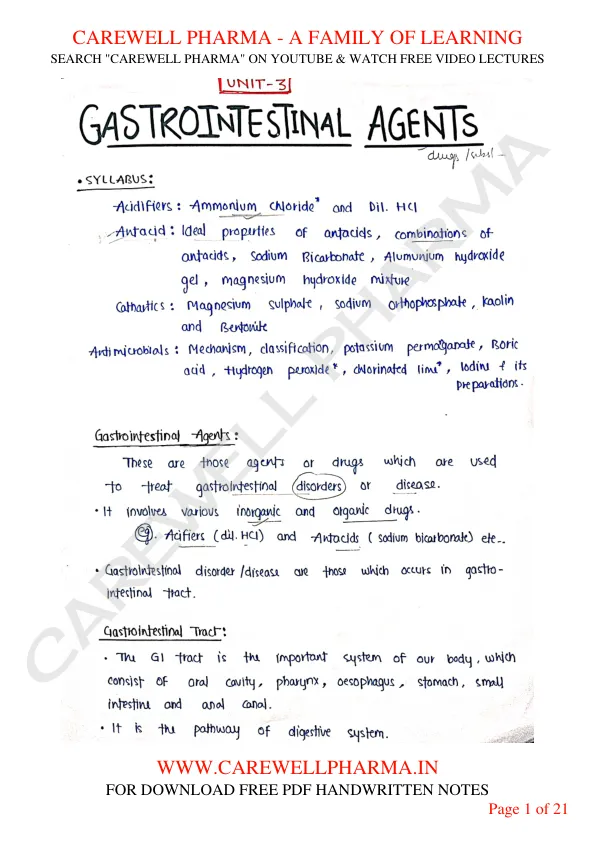 CAREWELL PHARMA - A FAMILY OF LEARNING
SEARCH "CAREWELL PHARMA" ON YOUTUBE & WATCH FREE VIDEO LECTURES
UNIT-3
GASTROINTESTINAL AGENTS
drugs /subst -
• SYLLABUS:
Acidifiers : Ammonium chloride* and Dil. HCl
Antacid : Ideal properties of antacids, combinations of
antacids, Sodium Bicarbonate, Alumunium hydroxide
gel, magnesium hydroxide mixture
Cathartics : Magnesium sulphate, sodium orthophosphate, kaolin
and Bentonite
Antimicrobials : Mechanism, classification, potassium permanganate, Boric
acid, Hydrogen peroxide*, chlorinated lime*, Iodine & its
preparations.
Gastrointestinal Agents :
These are those agents or drugs which are used
to treat gastrointestinal disorders or disease.
• It involves various inorganic and organic drugs.
eg. Acifiers (dil. HCl) and Antacids ( sodium bicarbonate) etc..
• Gastrointestinal disorder /disease are those which occurs in gastro-
intestinal tract.
Gastrointestinal Tract :
• The GI tract is the important system of our body, which
consist of oral cavity, pharynx, oesophagus, stomach, small
intestine and anal canal.
• It is the pathway of digestive system.
CAREWELL PHARMA
WWW.CAREWELLPHARMA.IN
FOR DOWNLOAD FREE PDF HANDWRITTEN NOTES
Page 1 of 21